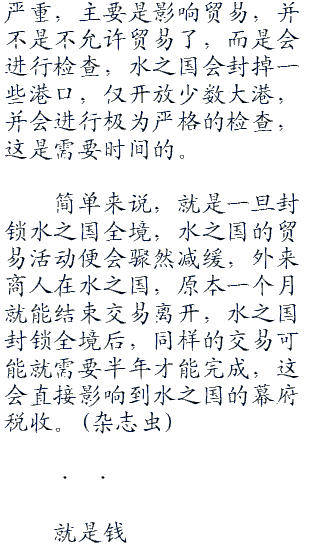 严重，主要是影响贸易，并
不是不允许贸易了，而是会
进行检查，水之国会封掉一
些港口，仅开放少数大港，
并会进行极为严格的检查，
这是需要时间的。
简单来说，就是一旦封
锁水之国全境，水之国的贸
易活动便会骤然减缓，外来
商人在水之国，原本一个月
就能结束交易离开，水之国
封锁全境后，同样的交易可
能就需要半年才能完成，这
会直接影响到水之国的幕府
税收。(杂志虫)
. .
就是钱